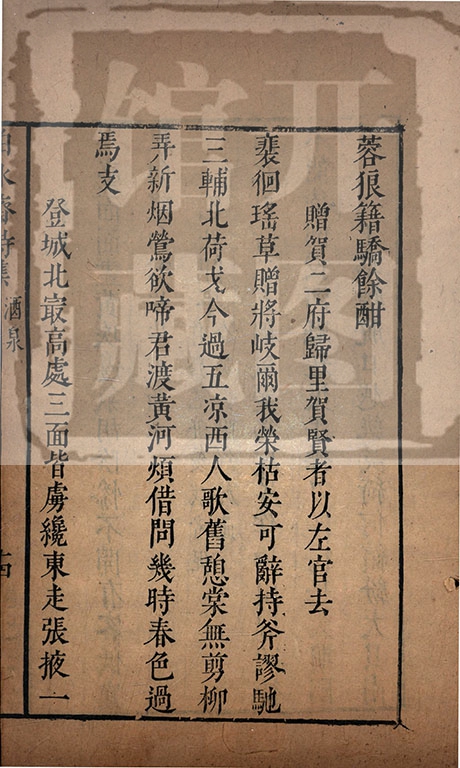 蓉狼籍驕餘酣
贈賀二府歸里賀賢者以左官去
裵徊瑤草贈將岐爾我榮枯安可辭持斧謬馳
三輔北荷戈今過五凉西人歌舊憩棠無剪柳
弄新烟鶯欲啼君渡黃河煩借問幾時春色過
焉支
登城北㝡高處三面皆虜纔東走張掖一
詩集 酒泉
开图
馆藏